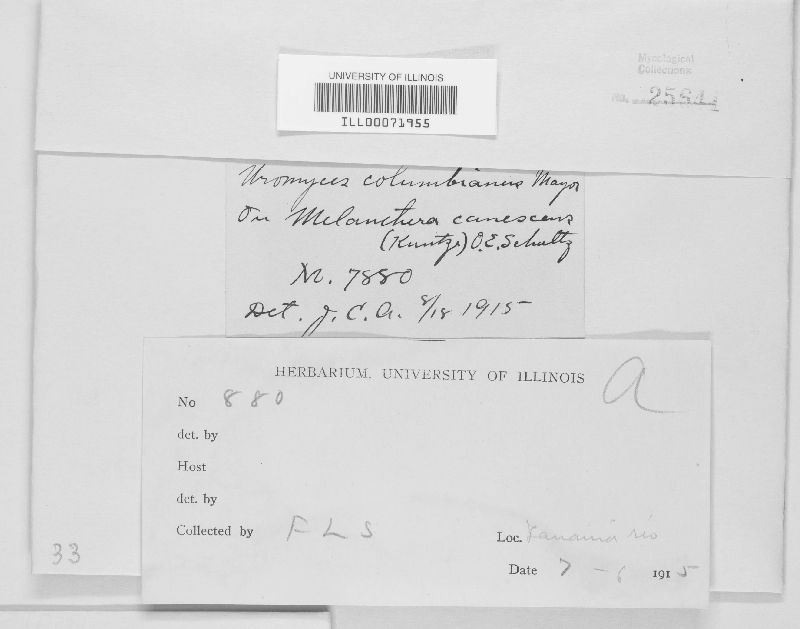 UNIVERSITY OF ILLINOIS
ILL00071955
Mycological
Collections
No.
Uromyces columbianus Mayor
On Melanthera canescens
(Kuntze) O.E. Schultz
N. 7880
Det. J. C. A. 8/18 1915
HERBARIUM, UNIVERSITY OF ILLINOIS
a
No 880
det. by
Host
det. by
Collected by F L S
Loc.
Date 7 - 6 1915
33